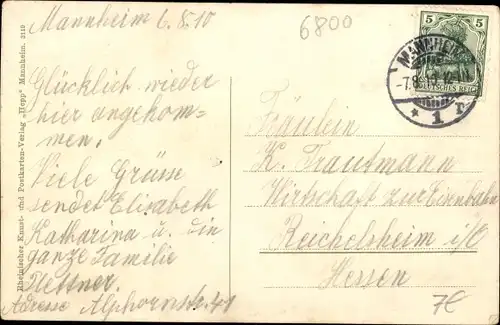 Mannheim 6.8.10
6800
Glücklich wieder
hier angekom-
men.
Viele Grüsse
sendet Elisabeth
Katharina u. die
ganze Familie
Plettner.
Adresse Alphornstr. 41
Rheinischer Kunst- und Postkarten-Verlag „Hepp“ Mannheim. 3115
5 5
DEUTSCHES REICH
MANNHEIM
-7.8.10.
* 1
Fräulein
K. Trautmann
Wirtschaft zur Eisenbahn
Reichelsheim i/O
Hessen
7€